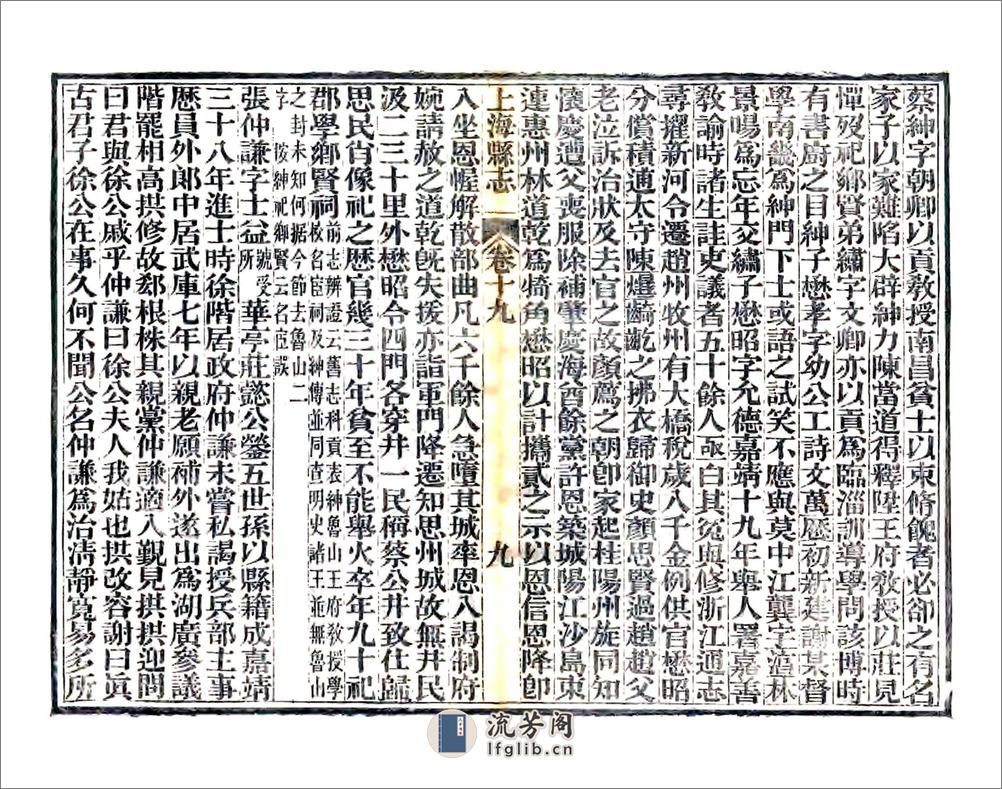 蔡紳字朝卿以貢敎授南昌貧士以束脩餽者必卻之有名
家子以家難陷大辟紳力陳當道得釋陞王府敎授以莊見
憚歿祀鄉賢弟繡字文卿亦以貢爲臨淄訓導學問該博時
有書廚之目紳子懋孝字幼公工詩文萬歷初新建謝某督
學南畿爲紳門下士或語之試笑不應與莫中江龔字瀛林
景暘爲忘年交繡子懋昭字允德嘉靖十九年舉人署嘉善
敎諭時諸生詿吏議者五十餘人亟白其冤與修浙江通志
尋擢新河令遷趙州牧州有大橋稅歲八千金例供官懋昭
分償積逋太守陳爟齮齕之拂衣歸御史顏思賢過趙趙父
老泣訴治狀及去官之故顏薦之朝卽家起桂陽州旋同知
懷慶遭父喪服除補肇慶海酋餘黨許恩築城陽江沙島東
連惠州林道乾爲犄角懋昭以計攜貳之示以恩信恩降卽
上海縣志 卷十九 九
入坐恩幄解散部曲凡六千餘人急墮其城率恩入謁制府
婉請赦之道乾旣失援亦詣軍門降遷知思州城故無井民
汲二三十里外懋昭令四門各穿井一民稱蔡公井致仕歸
思民肖像祀之歷官幾三十年貧至不能舉火卒年九十祀
郡學鄉賢祠前志辨證云舊志科貢表紳魯山王府敎授學校名宦祠及紳傳並同查明史諸王並無魯山
之封未知何据今節去魯山二字 按紳祀鄉賢云名宦誤
張仲謙字士益號受所華亭莊懿公鎣五世孫以縣籍成嘉靖
三十八年進士時徐階居政府仲謙未嘗私謁授兵部主事
歷員外郎中居武庫七年以親老願補外遂出爲湖廣參議
階罷相高拱修故郄根株其親黨仲謙適入覲見拱拱迎問
曰君與徐公戚乎仲謙曰徐公夫人我姑也拱改容謝曰眞
古君子徐公在事久何不聞公名仲謙爲治淸靜寬易多所
流芳阁
lfglib.cn